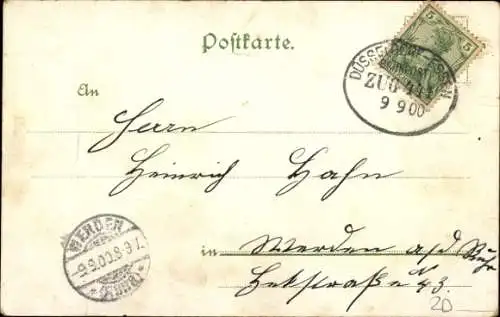 Postkarte.
5 5
DÜSSELDORF-ESSEN
BAHNPOST
ZUG
9 9 00
An
Herrn
Heinrich Hahn
in Werden a/d Ruhr
N 43.
20
WERDEN
9.9.00.8-9V.
(RUHR)